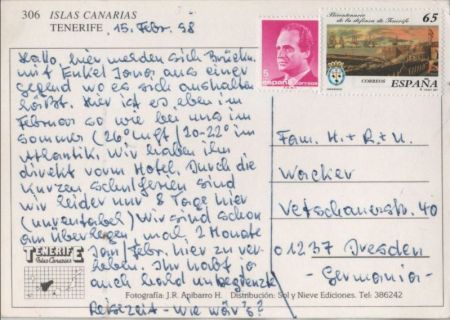 306 ISLAS CANARIAS
TENERIFE 15. Febr. 98
Hallo, hier melden sich
mit Enkel Jonas aus einer
Gegend wo es sich aushalten
läßt. Hier ist es eben im
Februar so wie bei uns im
Sommer (26° Luft / 20-22° im
Atlantik. Wir haben ihn
direkt vorm Hotel. Durch die
kurzen Schulferien sind
wir leider nur 8 Tage hier
(unrentabel) Wir sind schon
am überlegen mal 2 Monate
Jan/Febr. hier zu ver-
leben. Ihr habt ja
auch bald unbegrenzt
Reisezeit - wie wär's?
TENERIFE
Islas Canarias
5
españa correos
Bicentenario
de la defensa de Tenerife
65
CORREOS
ESPAÑA
Fam. H. + R. + U.
Wacker
Vetschauerstr. 40
01237 Dresden
- Germania -
Fotografía: J.R. Apibarro H. Distribución: Sol y Nieve Ediciones. Tel: 386242